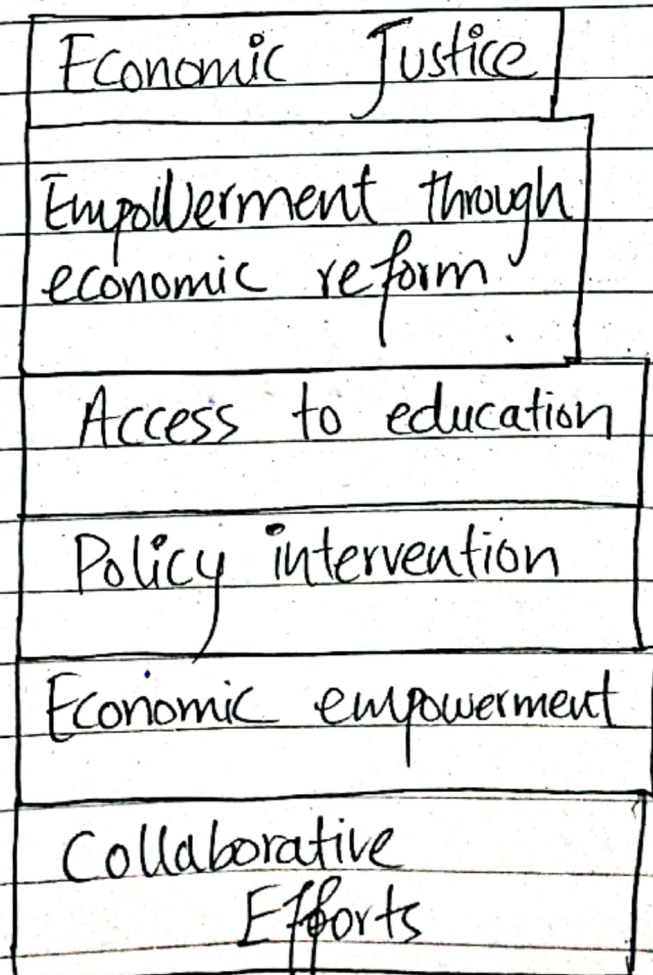 Economic Justice
Empowerment through
economic reform
Access to education
Policy intervention
Economic empowerment
Collaborative
Efforts